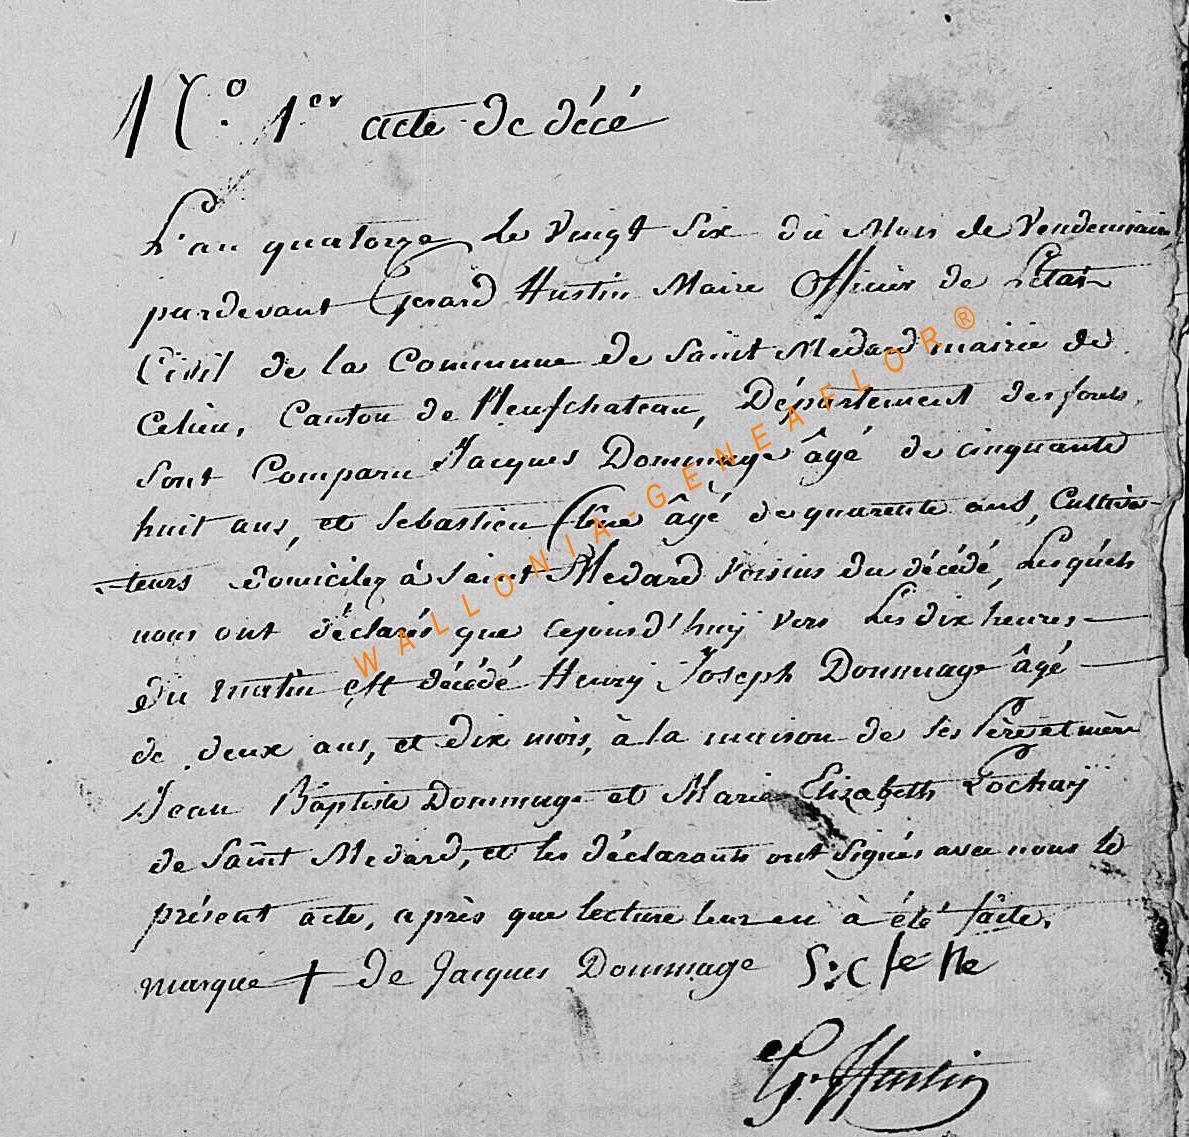 N.º 1er acte de décé
L'an quatorze Le vingt Six du Mois de Vendemiaire
pardevant Gerard Hustin Maire Officier de L'état
Civil de la Commune de Saint Medard mairie de
Canton de Neufchateau, Département des forets,
sont Comparu Jacques Dommage âgé de cinquante
huit ans, et Sebastien âgé de quarente ans, Cultiva-
-teurs domiciliez à Saint Medard voisins du décédé, Lesquels
nous ont déclarés que cejourd'huÿ vers Les dix heures
du matin est décédé Henry Joseph Dommage âgé
de deux ans, et dix mois, à la maison de ses Père et mère
Jean Baptiste Dommage et Marie Elizabeth Lochaÿ
de Saint Medard, et les déclarants ont signés avec nous le
présent acte, après que lecture leur en à été faite.
marque + de Jacques Dommage S:
G. Hustin
WALLONIA-GENEAFLOR®